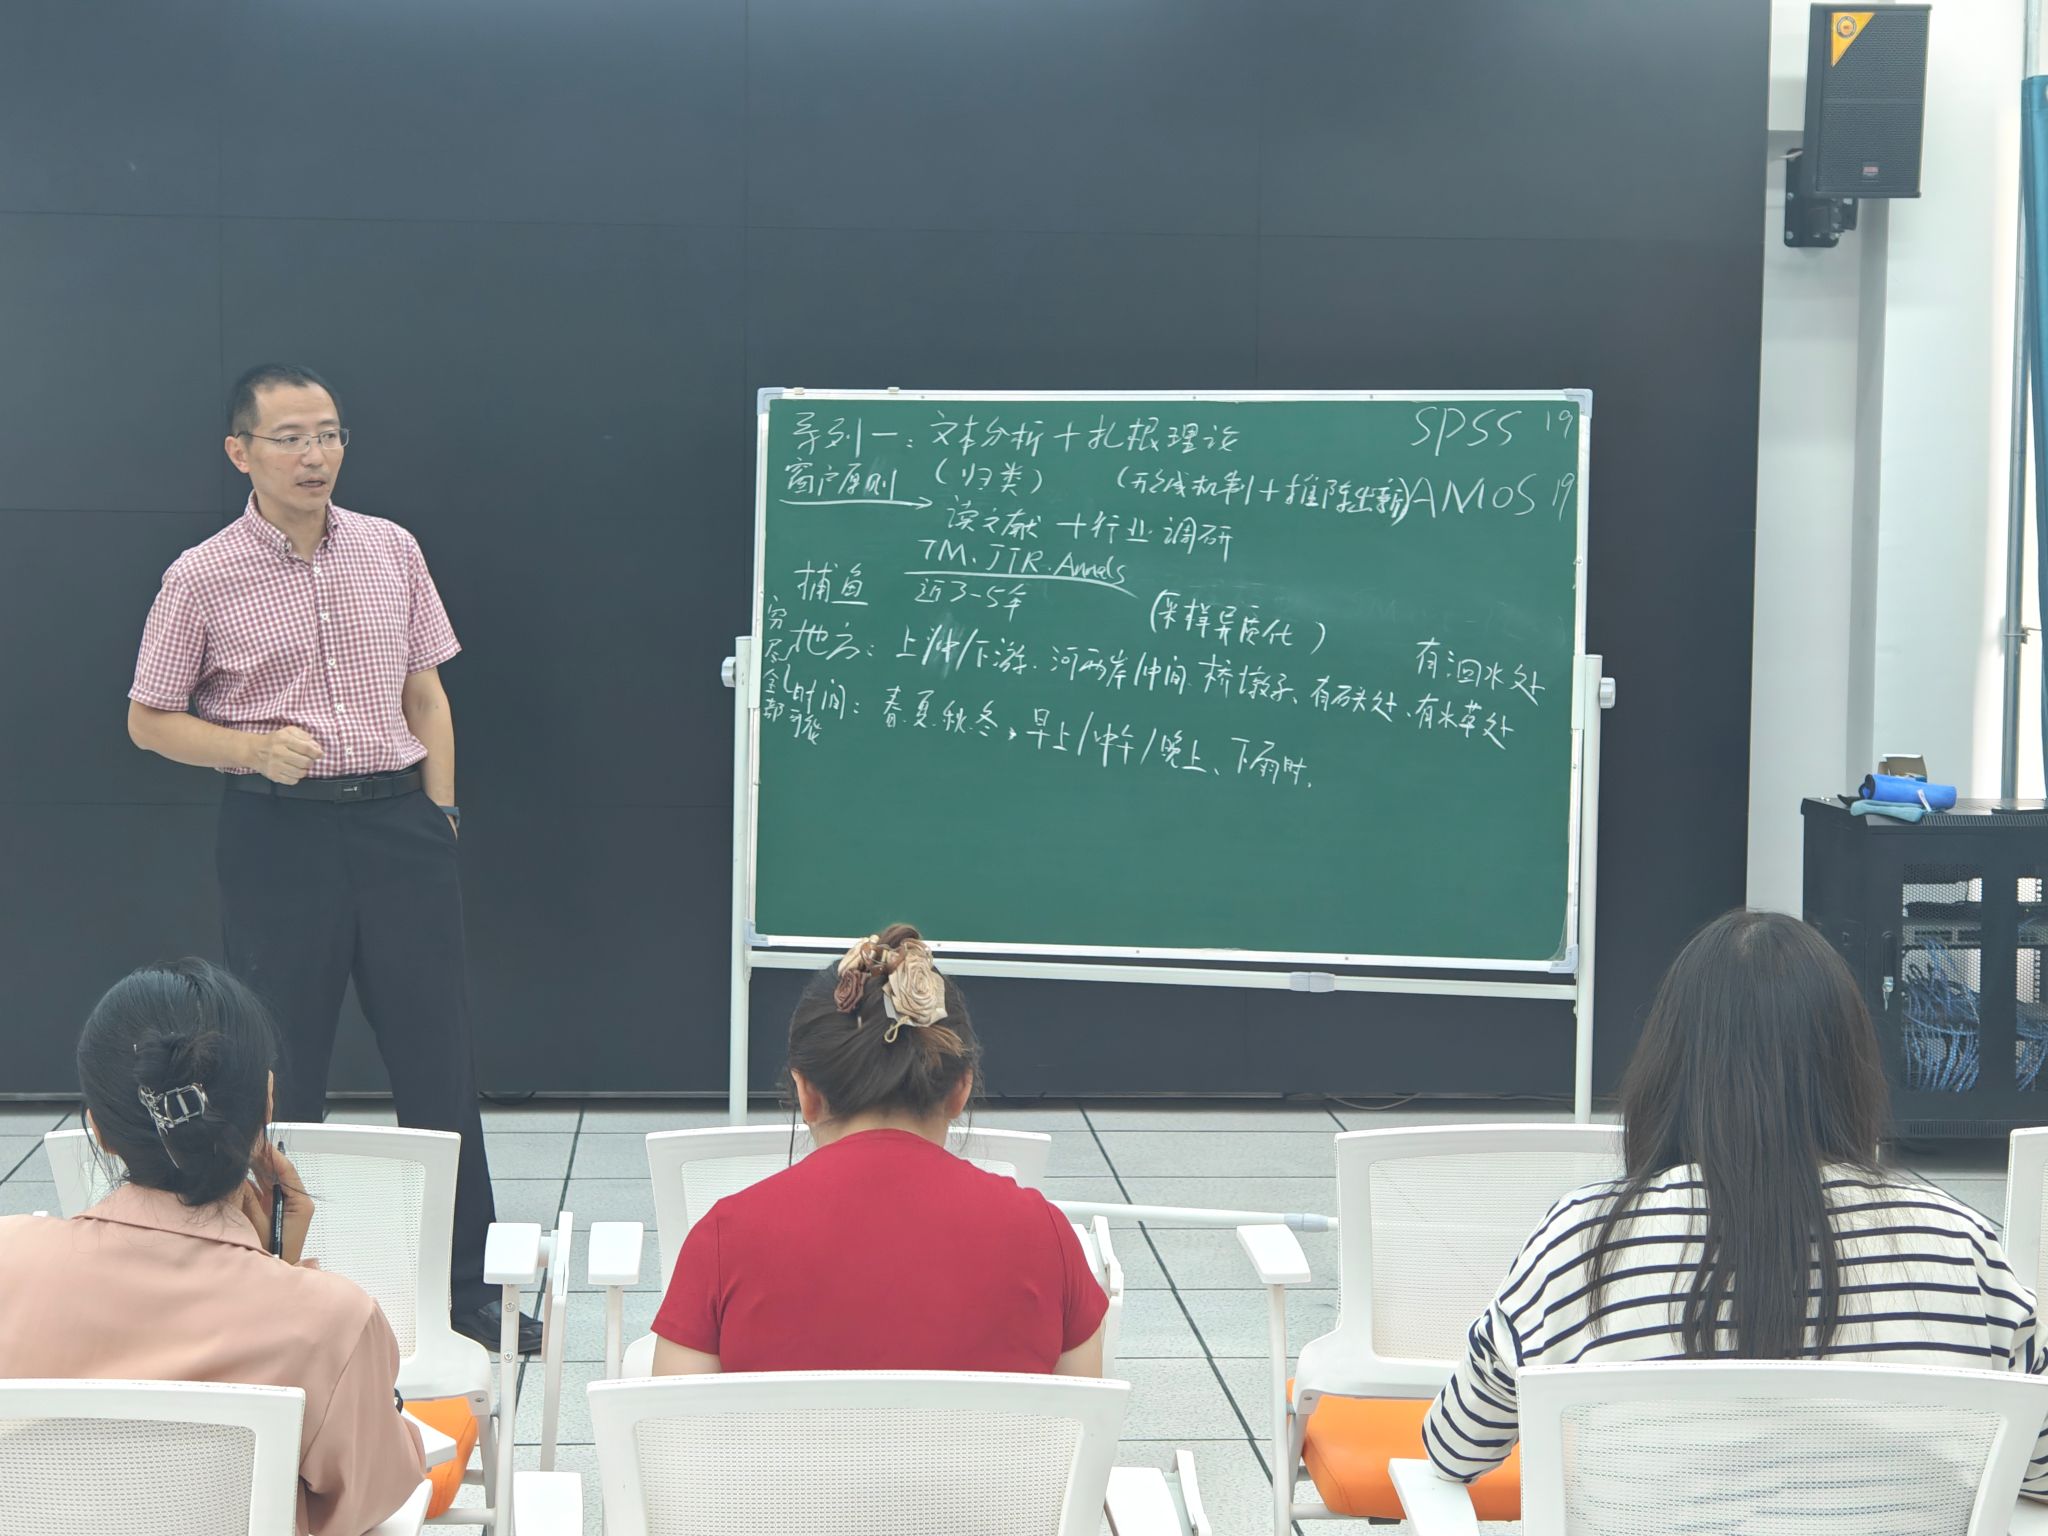 系列一：文本分析＋扎根理论
SPSS 19
窗户原则
（归类）
（形成机制＋推陈出新）
AMOS 19
读文献＋行业调研
TM、JTR、Annals
近3-5年
捕鱼
（采样异质化）
穷尽全部可能
地方：上/中/下游、河两岸/中间、桥墩子、有石头处、有水草处
有洄水处
时间：春.夏.秋.冬、早上/中午/晚上、下雨时.